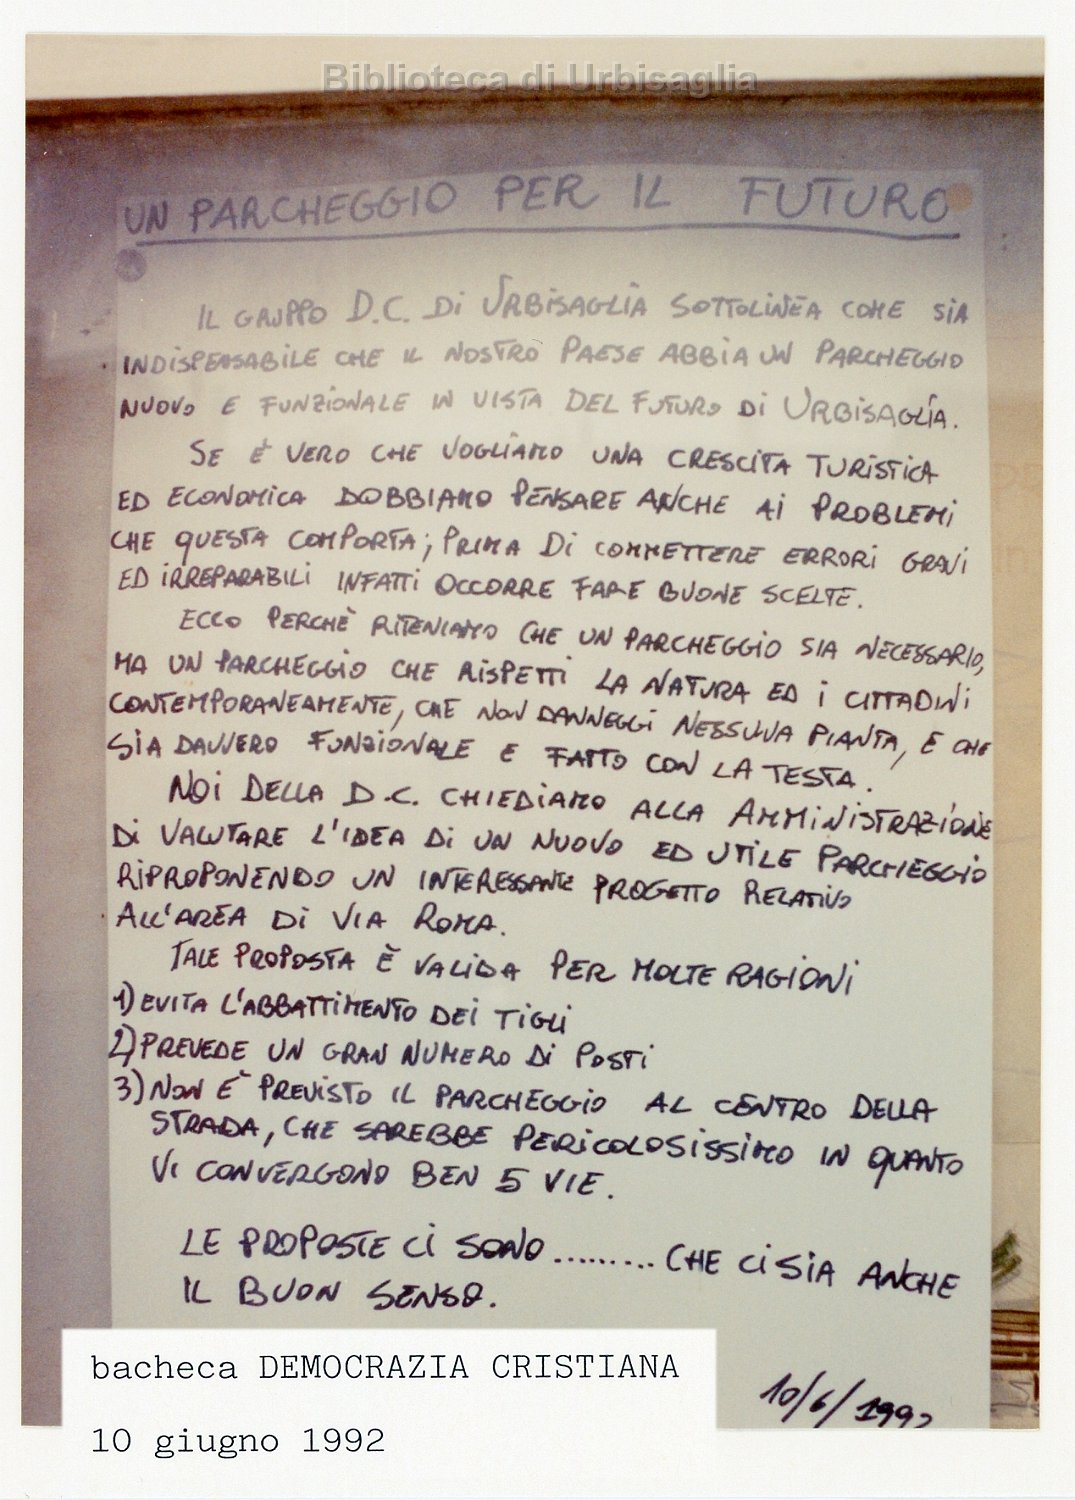 Biblioteca di Urbisaglia
UN PARCHEGGIO PER IL FUTURO
IL GRUPPO D.C. Di URBISAGLIA SOTTOLINEA COME SIA
INDISPENSABILE CHE IL NOSTRO PAESE ABBIA UN PARCHEGGIO
NUOVO E FUNZIONALE IN VISTA DEL FUTURO Di URBISAGLIA.
SE E' VERO CHE VOGLIAMO UNA CRESCITA TURISTICA
ED ECONOMICA DOBBIAMO PENSARE ANCHE AI PROBLEMI
CHE QUESTA COMPORTA; PRIMA Di COMMETTERE ERRORI GRAVI
ED IRREPARABILI INFATTI OCCORRE FARE BUONE SCELTE.
ECCO PERCHÈ RITENIAMO CHE UN PARCHEGGIO SIA NECESSARIO,
MA UN PARCHEGGIO CHE RISPETTI LA NATURA ED I CITTADINI
CONTEMPORANEAMENTE, CHE NON DANNEGGI NESSUNA PIANTA, E CHE
SIA DAVVERO FUNZIONALE E FATTO CON LA TESTA.
NOI DELLA D.C. CHIEDIAMO ALLA AMMINISTRAZIONE
Di VALUTARE L'IDEA Di UN NUOVO ED UTILE PARCHEGGIO
RIPROPONENDO UN INTERESSANTE PROGETTO RELATIVO
ALL'AREA Di VIA ROMA.
TALE PROPOSTA È VALIDA PER MOLTE RAGIONI
1) EVITA L'ABBATTIMENTO DEI TIGLI
2) PREVEDE UN GRAN NUMERO Di POSTI
3) NON E' PREVISTO IL PARCHEGGIO AL CENTRO DELLA
STRADA, CHE SAREBBE PERICOLOSISSIMO IN QUANTO
VI CONVERGONO BEN 5 VIE.
LE PROPOSTE CI SONO ......... CHE CI SIA ANCHE
IL BUON SENSO.
10/6/1992
bacheca DEMOCRAZIA CRISTIANA
10 giugno 1992